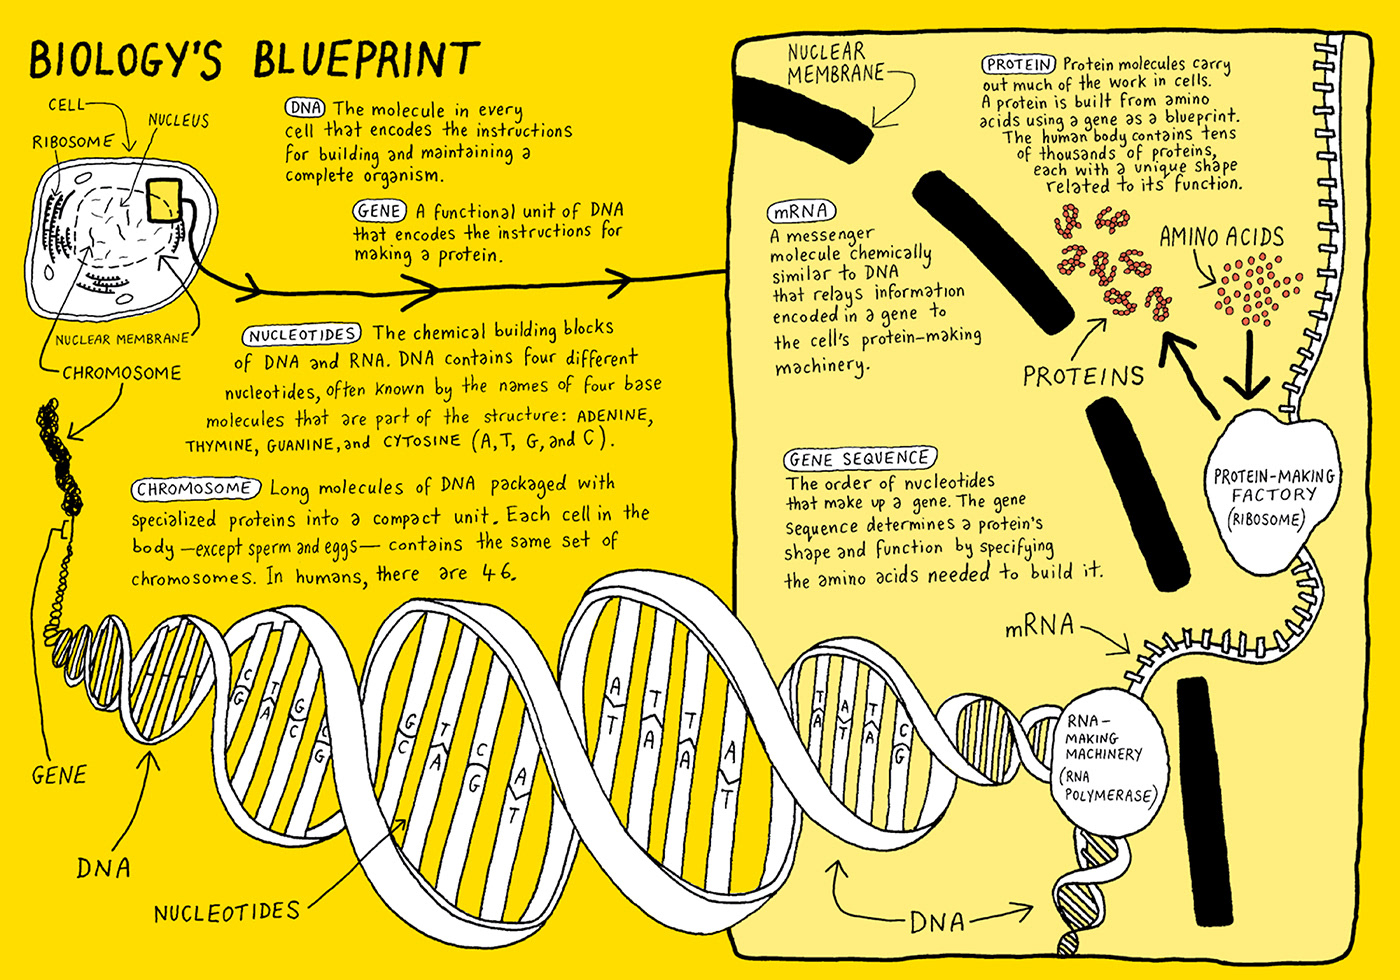 BIOLOGY'S BLUEPRINT
CELL
NUCLEUS
RIBOSOME
NUCLEAR MEMBRANE
CHROMOSOME
DNA The molecule in every
cell that encodes the instructions
for building and maintaining a
complete organism.
GENE A functional unit of DNA
that encodes the instructions for
making a protein.
NUCLEOTIDES The chemical building blocks
of DNA and RNA. DNA contains four different
nucleotides, often known by the names of four base
molecules that are part of the structure: ADENINE,
THYMINE, GUANINE, and CYTOSINE (A, T, G, and C).
CHROMOSOME Long molecules of DNA packaged with
specialized proteins into a compact unit. Each cell in the
body —except sperm and eggs— contains the same set of
chromosomes. In humans, there are 46.
GENE
DNA
NUCLEOTIDES
C T G C
G A C G
G T C A
C A G T
A T T A
T A A T
T A T C
A T A G
NUCLEAR
MEMBRANE
PROTEIN Protein molecules carry
out much of the work in cells.
A protein is built from amino
acids using a gene as a blueprint.
The human body contains tens
of thousands of proteins,
each with a unique shape
related to its function.
mRNA
A messenger
molecule chemically
similar to DNA
that relays information
encoded in a gene to
the cell's protein-making
machinery.
AMINO ACIDS
PROTEINS
GENE SEQUENCE
The order of nucleotides
that make up a gene. The gene
sequence determines a protein's
shape and function by specifying
the amino acids needed to build it.
PROTEIN-MAKING
FACTORY
(RIBOSOME)
mRNA
RNA-
MAKING
MACHINERY
(RNA
POLYMERASE)
DNA